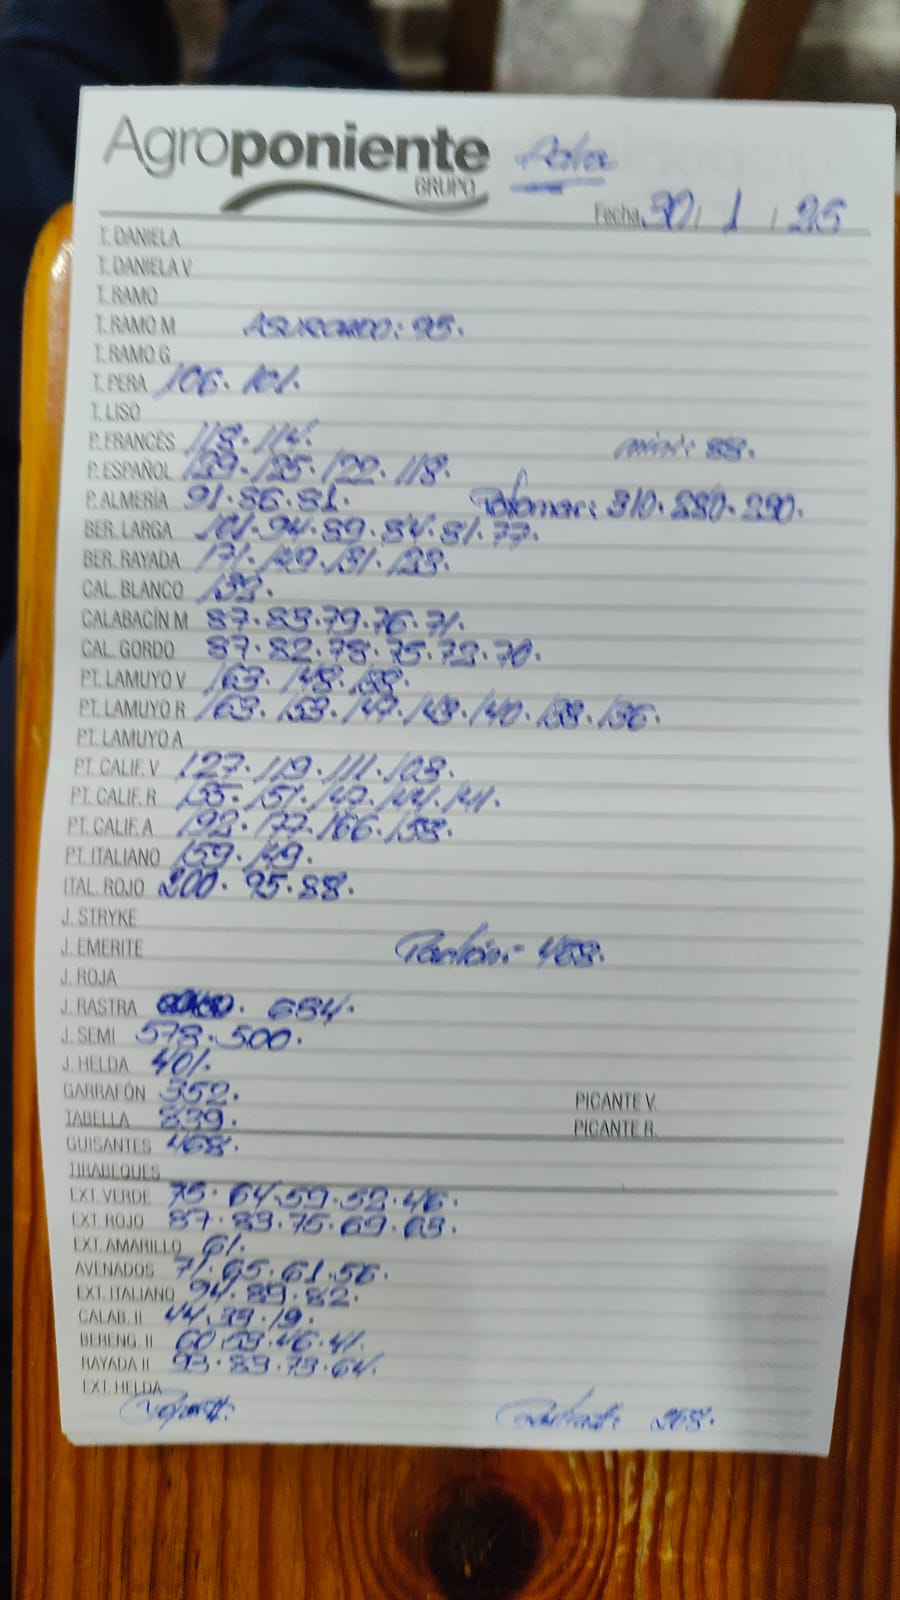 Agroponiente Adra
GRUPO
Fecha 30 / 1 / 25
T. DANELA
T. DANELA V
T. RAMO
T. RAMO M ASURCADO: 95.
T. RAMO G
T. PERA 106. 101.
T. LISO
P. FRANCÉS 118. 114. mini: 88.
P. ESPAÑOL 129. 125. 122. 118.
P. ALMERÍA 91. 86. 81. 310. 280. 290.
BER. LARGA 101. 94. 89. 84. 81. 77.
BER. RAYADA 171. 149. 131. 123.
CAL. BLANCO 132.
CALABACÍN M 87. 83. 79. 76. 71.
CAL. GORDO 87. 82. 78. 75. 73. 70.
PT. LAMUYO V 163. 148. 138.
PT. LAMUYO R 163. 153. 147. 143. 140. 138. 136.
PT. LAMUYO A
PT. CALIF. V 127. 119. 111. 103.
PT. CALIF. R 155. 151. 147. 144. 141.
PT. CALIF. A 192. 177. 166. 158.
PT. ITALIANO 159. 149.
ITAL. ROJO 200. 95. 88.
J. STRYKE
J. EMERITE 468.
J. ROJA
J. RASTRA 684.
J. SEMI 578. 500.
J. HELDA 401.
GARRAFÓN 352. PICANTE V.
TABELLA 839. PICANTE R.
GUISANTES 468.
TIRABEQUES
EXT. VERDE 75. 64. 59. 52. 46.
EXT. ROJO 87. 83. 75. 69. 63.
EXT. AMARILLO 61.
AVENADOS 71. 65. 61. 56.
EXT. ITALIANO 94. 89. 82.
CALAB. II 44. 33. 19.
BERENG. II 60. 53. 46. 41.
RAYADA II 93. 83. 73. 64.
EXT. HELDA
268.